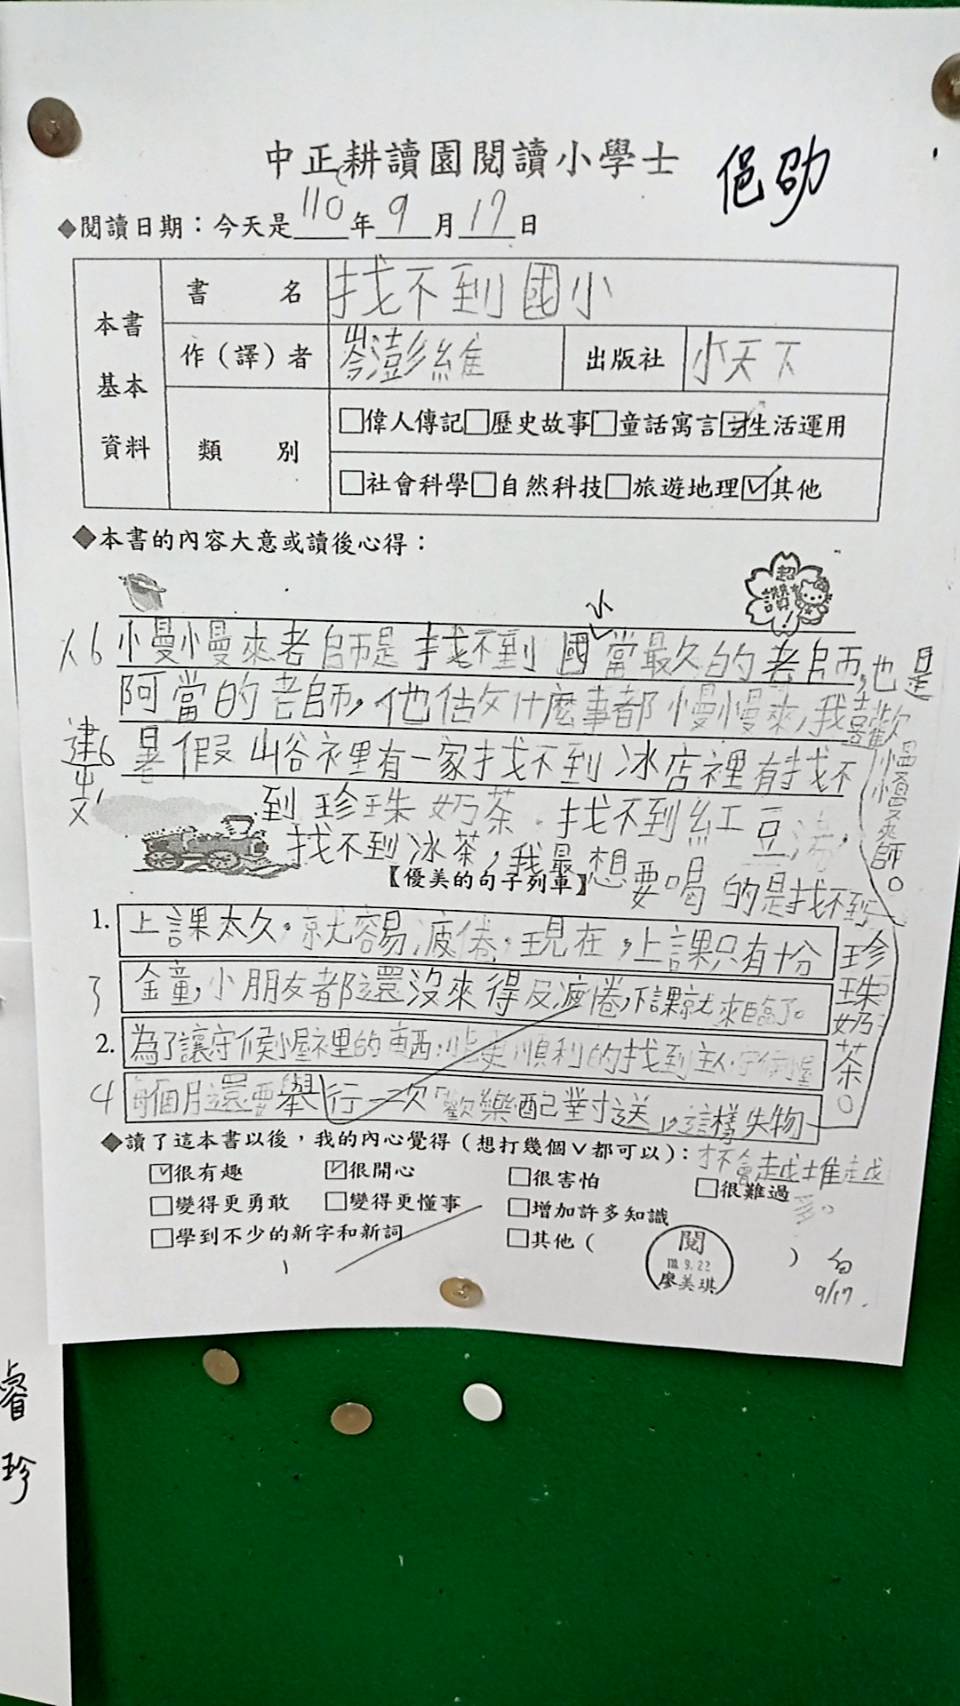 中正耕讀園閱讀小學士
俋劭
◆閱讀日期：今天是110年9月17日
本書基本資料
書名 找不到國小
作（譯）者 岑澎維 出版社 小天下
類別
□偉人傳記□歷史故事□童話寓言□生活運用
□社會科學□自然科技□旅遊地理☑其他
◆本書的內容大意或讀後心得：
超讚!
慢慢來老師是找不到國小當最久的老師，也是
阿當的老師，他做什麼事都慢慢來，我喜歡慢慢來師。
暑假山谷裡有一家找不到冰店裡有找不
到珍珠奶茶、找不到紅豆
找不到冰茶，我最想要喝的是找不到
珍珠奶茶。
【優美的句子列車】
1. 上課太久，就容易疲倦，現在，上課只有十分
3 金童，小朋友都還沒來得及疲倦，下課就來臨了。
2. 為了讓守候屋裡的東西順利的找到主人
4 每個月還要舉行一次「歡樂配對送」，這樣失物
才不會越堆越多。
◆讀了這本書以後，我的內心覺得（想打幾個∨都可以）：
☑很有趣 ☑很開心 □很害怕 □很難過
□變得更勇敢 □變得更懂事 □增加許多知識
□學到不少的新字和新詞 □其他（ ）
閱
110.9.22
廖美琪
9/17
睿珍